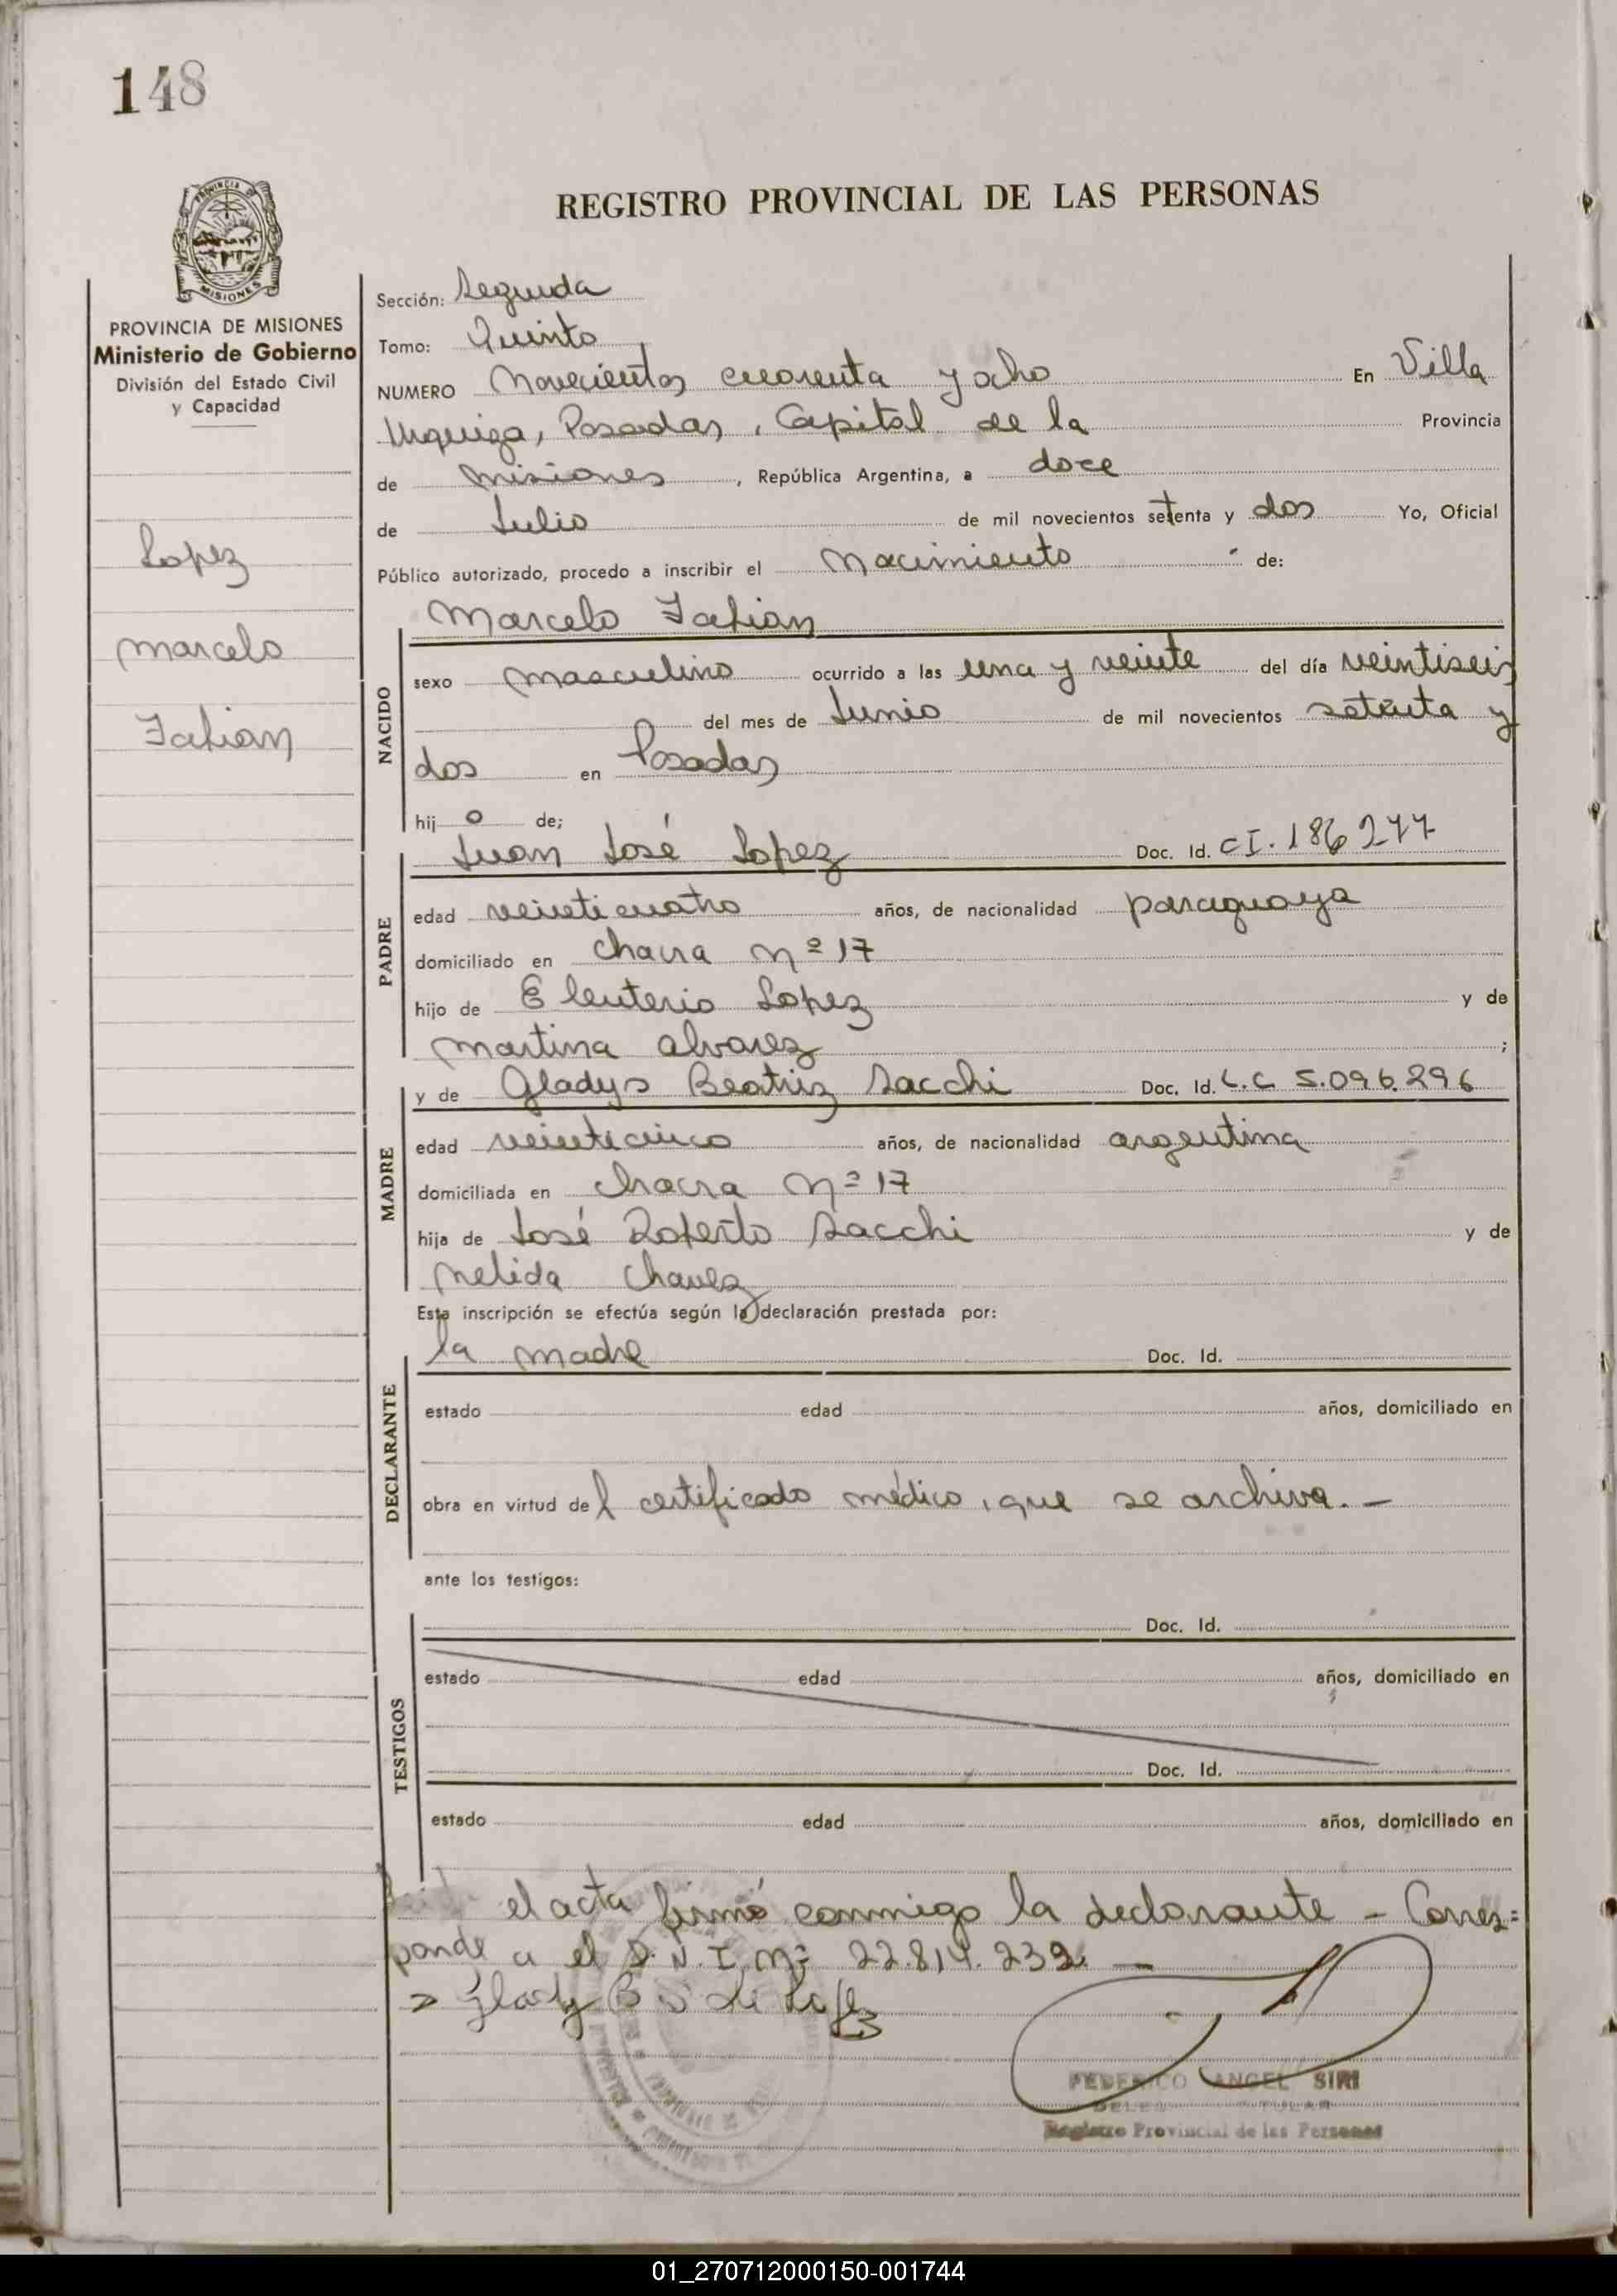 148
PROVINCIA DE
MISIONES
PROVINCIA DE MISIONES
Ministerio de Gobierno
División del Estado Civil
y Capacidad
Lopez
Marcelo
Fabian
REGISTRO PROVINCIAL DE LAS PERSONAS
Sección: Segunda
Tomo: Quinto
NUMERO Novecientos cuarenta y ocho En Villa
Urquiza, Posadas, Capital de la Provincia
de Misiones, República Argentina, a doce
de Julio de mil novecientos setenta y dos Yo, Oficial
Público autorizado, procedo a inscribir el Nacimiento de:
Marcelo Fabian
NACIDO
sexo masculino ocurrido a las una y veinte del día veintiseis
del mes de Junio de mil novecientos setenta y
dos en Posadas
hij o de;
Juan José Lopez Doc. Id. C I. 186277
PADRE
edad veinticuatro años, de nacionalidad paraguaya
domiciliado en chacra Nº 17
hijo de Eleuterio Lopez y de
Martina Alvarez ;
y de Gladys Beatriz Sacchi Doc. Id. L.C 5.096.296
MADRE
edad veinticinco años, de nacionalidad argentina
domiciliada en chacra Nº 17
hija de José Roberto Sacchi y de
Nelida Chavez
Esta inscripción se efectúa según la declaración prestada por:
la madre Doc. Id.
DECLARANTE
estado edad años, domiciliado en
obra en virtud del certificado médico, que se archiva. -
ante los testigos:
Doc. Id.
TESTIGOS
estado edad años, domiciliado en
Doc. Id.
estado edad años, domiciliado en
el acta firmó conmigo la declarante - Corres=
ponde a el D.N.I. Nº 22.814.232. -
Gladys B S de Lopez
FEDERICO ANGEL SIRI
TITULAR
Registro Provincial de las Personas
01_270712000150-001744